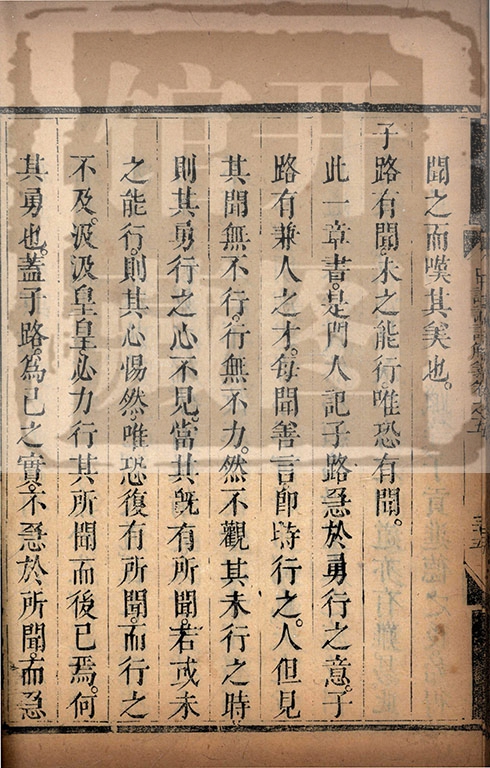 聞之而嘆其矣也。
子路有聞。未之能行。唯恐有聞。
此一章書。是門人記子路急於勇行之意。子
路有兼人之才。每聞善言卽時行之。人但見
其聞無不行。行無不力。然不觀其未行之時
則其勇行之心不見。當其旣有所聞。若或未
之能行。則其心惕然。唯恐復有所聞。而行之
不及。汲汲皇皇。必力行其所聞而後已焉。何
其勇也。蓋子路。為己之實。不急於所聞。而急